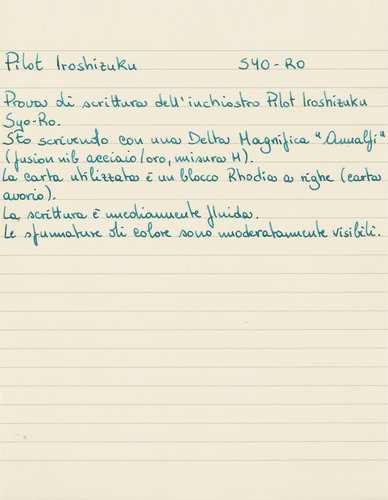 Pilot Iroshizuku SYO-RO
Prova di scrittura dell'inchiostro Pilot Iroshizuku
Syo-Ro.
Sto scrivendo con una Delta Magnifica "Amalfi"
(fusion nib acciaio/oro, misura M).
La carta utilizzata è un blocco Rhodia a righe (carta
avorio).
La scrittura è mediamente fluida.
Le sfumature di colore sono moderatamente visibili.